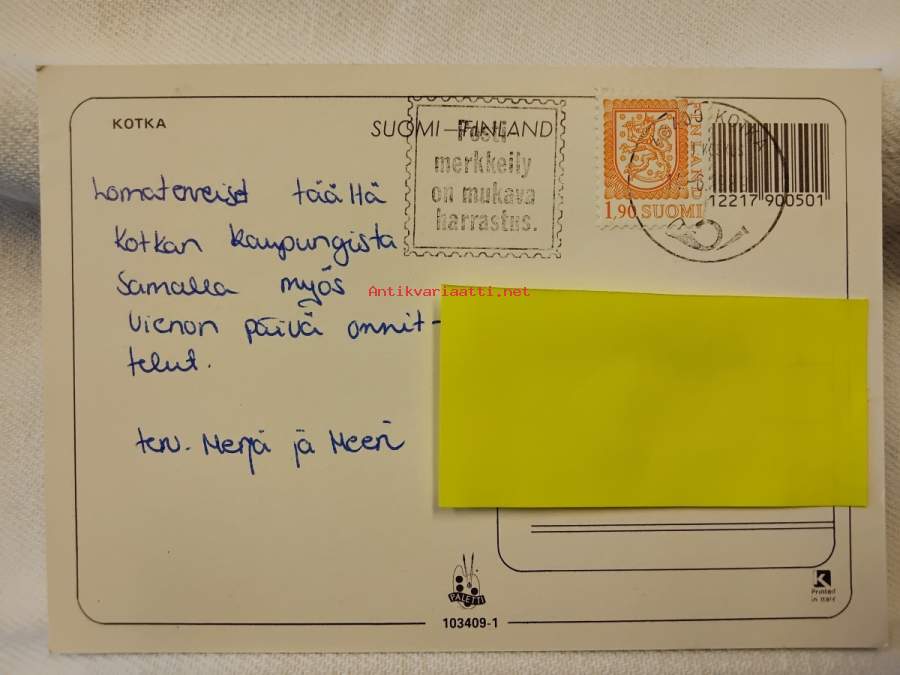 KOTKA
SUOMI–FINLAND
Posti
merkkeily
on mukava
harrastus.
FINLAND
1,90 SUOMI
KOTKA
12217 900501
Lomaterveiset täältä
Kotkan kaupungista
Samalla myös
Vienon päivä onnit-
telut.
terv. Merja jä Meeri
Antikvariaatti.net
PALETTI
103409-1
K
Printed
in Italy